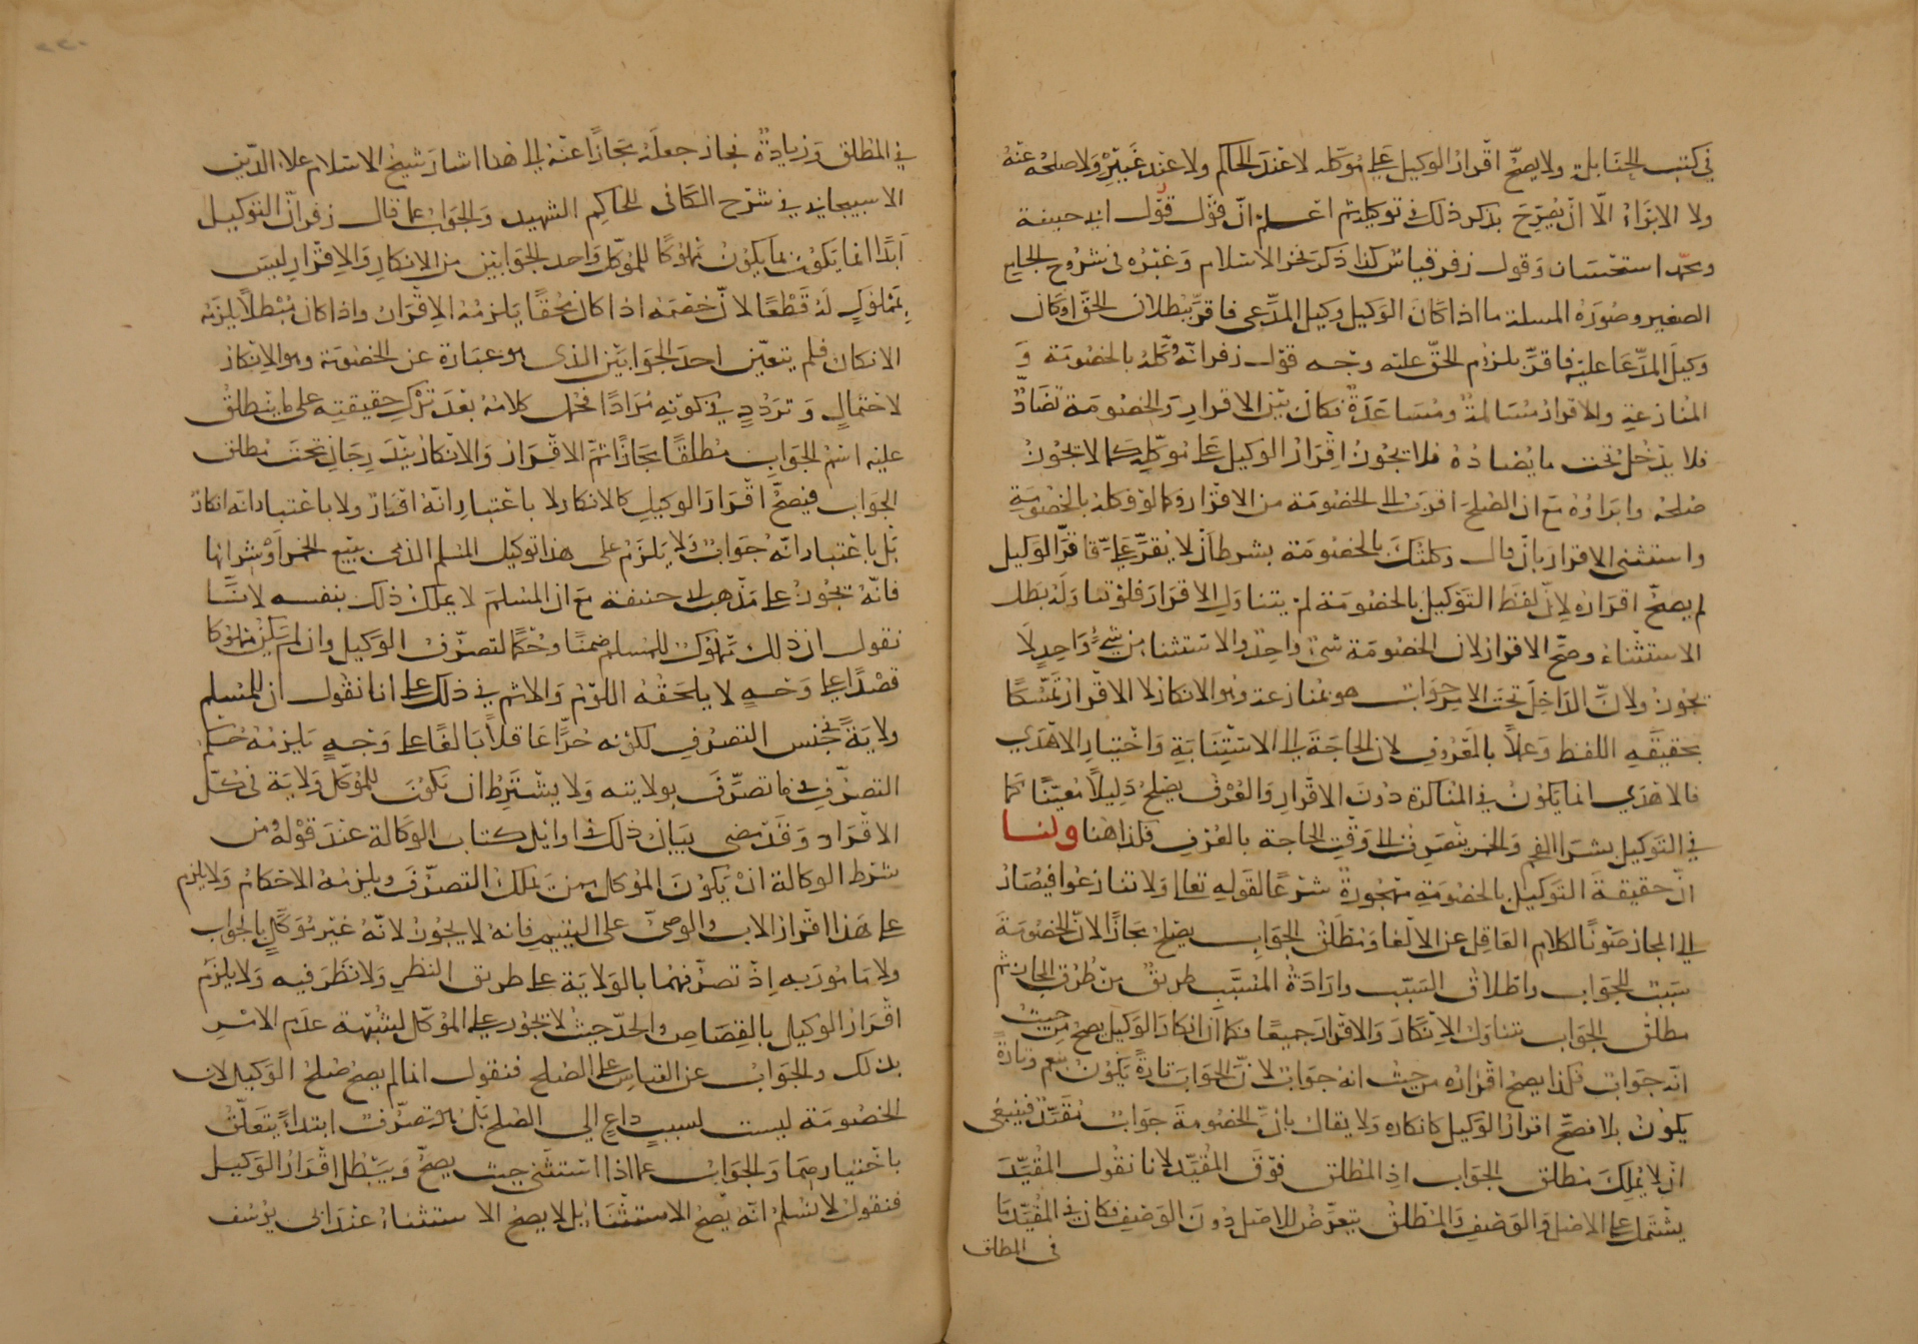 في كتب الحنابلة ولا يصحّ اقرار الوكيل على موكله لا عند الحاكم ولا عند غيره ولا صلحه عنه
ولا الابراء الّا ان يصرّح بذكر ذلك في توكيله ثم اعلم انّ قول قول ابي حنيفة
ومحمد استحسان وقول زفر قياس كذا ذكر فخر الاسلام وغيره في شروح الجامع
الصغير وصورة المسلة ما اذا كان الوكيل وكيل المدّعي فاقرّ ببطلان الحقّ او كان
وكيل المدّعا عليه فاقرّ بلزوم الحقّ عليه وجه قول زفر انّه وكّله بالخصومة و
المنازعة والاقرار مسالمة ومساعدة فكان بين الاقرار والخصومة تضادّ
فلا يدخل تحت ما يضاده فلا يجوز اقرار الوكيل على موكّله كما لا يجوز
صلحه وابراؤه مع ان الصلح اقرب الى الخصومة من الاقرار وكما لو وكله بالخصومة
واستثنى الاقرار بان قال وكلتك بالخصومة بشرط ان لا تقرّ عليّ فاقرّ الوكيل
لم يصحّ اقراره لانّ لفظ التوكيل بالخصومة لم يتناول الاقرار فلو تناوله بطل
الاستثناء وصحّ الاقرار لان الخصومة شئ واحد والاستثنا من شئ واحد لا
يجوز ولانّ الداخل تحت الامر جواب هو منازعة وهو الانكار لا الاقرار تمسّكا
بحقيقة اللفظ وعملاً بالمعروف لان الحاجة الى الاستنابة واختيار الاهدي
فالاهدي انما يكون في المناكرة دون الاقرار والعرف يصلح دليلاً معيّنا كما
في التوكيل بشرا الفحم والخمر ينصرف الى وقت الحاجة بالعرف فكذا هنا ولنا
انّ حقيقة التوكيل بالخصومة مهجورة شرعا لقوله تعالى ولا تنازعوا فيصار
الى المجاز صونا لكلام العاقل عن الالغا ومطلق الجواب يصلح مجازا لان الخصومة
سبب للجواب واطلاق السبب وارادة المسبّب طريق من طرق المجاز ثم
مطلق الجواب يتناول الانكار والاقرار جميعا فكما ان انكار الوكيل يصح من حيث
انه جواب فكذا يصح اقراره من حيث انه جواب لانّ الجواب تارة يكون بنعم وتارة
يكون بلا فصحّ اقرار الوكيل كانكاره ولا يقال بانّ الخصومة جواب مقيّد فينبغي
ان لا يملك مطلق الجواب اذ المطلق فوق المقيّد لانا نقول المقيّد
يشتمل على الاصل والوصف والمطلق يتعرّض للاصل دون الوصف فكان في المقيّد ما
في المطلق
في المطلق وزيادة فجاز جعله مجازا عنه الى هذا اشار شيخ الاسلام علاء الدّين
الاسبيجابي في شرح الكافي للحاكم الشهيد والجواب عما قال زفر انّ التوكيل
ابدا انما يكون بما يكون مملوكا للموكل واحد الجوابين من الانكار والاقرار ليس
بمملوك له قطعا لانّ خصمه اذا كان محقا يلزمه الاقرار واذا كان مبطلاً يلزمه
الانكار فلم يتعيّن احد الجوابين الذي هو عبارة عن الخصومة وهو الانكار
لاحتمال وتردد في كونه مرادا فحمل كلامه بعد ترك حقيقته على ما ينطلق
عليه اسم الجواب مطلقا مجازا ثم الاقرار والانكار يندرجان تحت مطلق
الجواب فيصحّ اقرار الوكيل كالانكار لا باعتبار انّه اقرار ولا باعتبار انه انكار
بل باعتبار انّه جواب ولا يلزم على هذا توكيل المسلم الذمي ببيع الخمر او شرائها
فانّه يجوز على مذهب ابي حنيفة مع ان المسلم لا يملك ذلك بنفسه لانّا
نقول ان ذلك مملوك للمسلم ضمنا وحكما لتصرّف الوكيل وان لم يكن مملوكا
قصدا على وجه لا يلحقه اللوم والاثم في ذلك على انا نقول ان للمسلم
ولاية جنس التصرف لكونه حرّا عاقلاً بالغا على وجه يلزمه حكم
التصرّف فيما تصرّف بولايته ولا يشترط ان تكون للموكل ولاية في كل
الافراد وقد مضى بيان ذلك في اوايل كتاب الوكالة عند قوله ومن
شرط الوكالة ان يكون الموكل ممن يملك التصرّف ويلزمه الاحكام ولا يلزم
على هذا اقرار الاب والوصي على اليتيم فانه لا يجوز لانّه غير موكّل بالجواب
ولا مامور به اذ تصرّفهما بالولاية على طريق النظر ولا نظر فيه ولا يلزم
اقرار الوكيل بالقصاص والحدّ حيث لا يجوز على الموكّل لشبهة عدم الامر
بذلك والجواب عن القياس على الصلح فنقول انما لم يصح صلح الوكيل لان
الخصومة ليست لسبب داع الى الصلح بل هو تصرّف ابتداء يتعلّق
باختيارهما والجواب عما اذا استثنى حيث يصحّ ويبطل اقرار الوكيل
فنقول لا نسلم انّه يصح الاستثنا بل لا يصح الاستثناء عند ابي يوسف